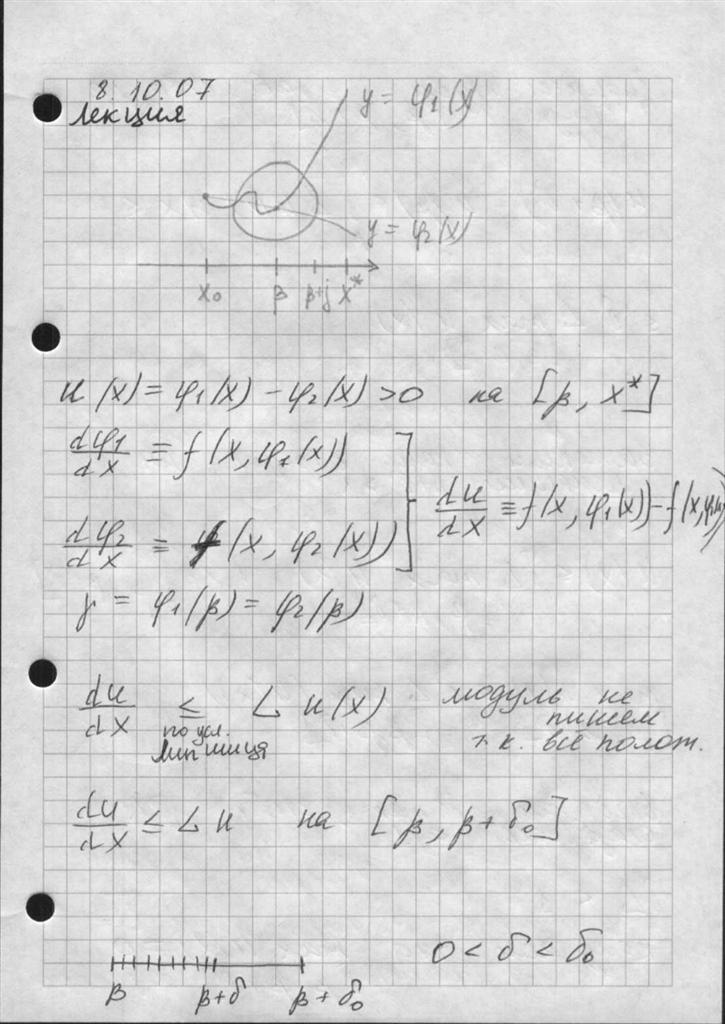 8.10.07
Лекция
y = φ₁(x)
y = φ₂(x)
x₀ β β+j x*
u(x) = φ₁(x) − φ₂(x) > 0 на [β, x*]
dφ₁/dx ≡ f(x, φ₁(x))
du/dx ≡ f(x, φ₁(x)) − f(x, φ₂(x))
dφ₂/dx ≡ f(x, φ₂(x))
γ = φ₁(β) = φ₂(β)
du/dx ≤ L u(x) модуль не
пишем
т.к. все полож.
по усл.
Липшица
du/dx ≤ L u на [β, β + δ₀]
0 < δ < δ₀
β β+δ β + δ₀